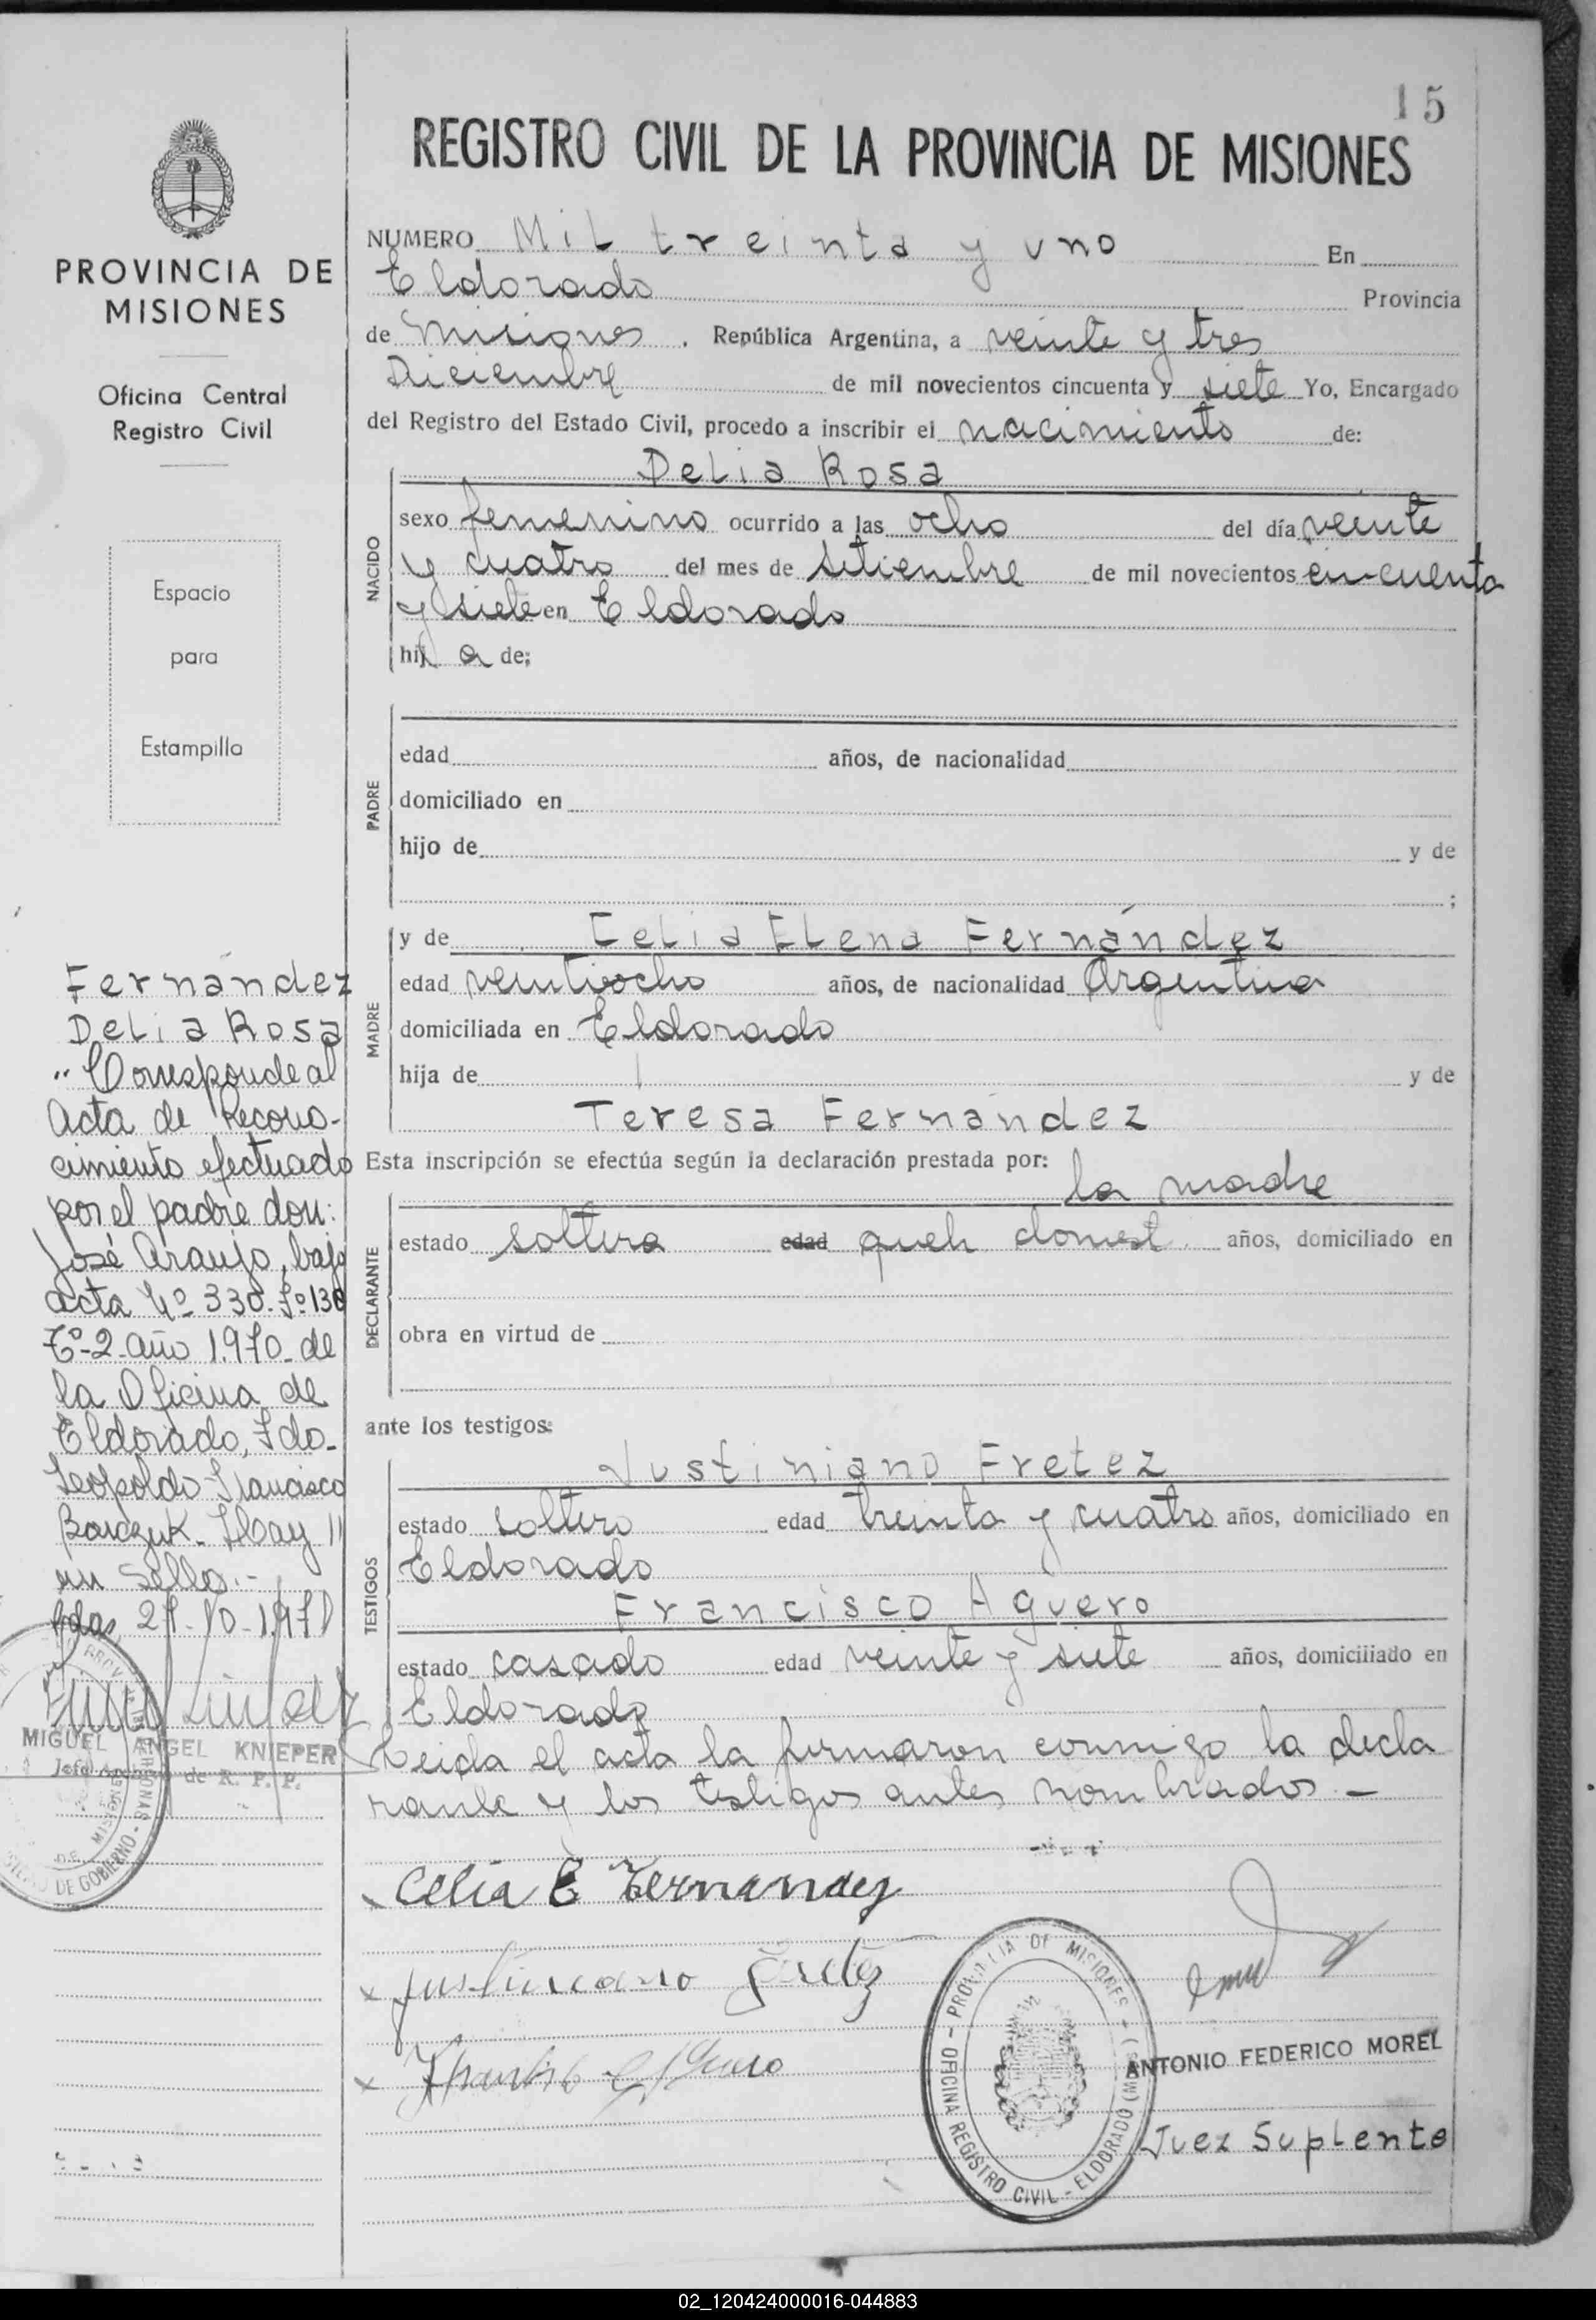 15
REGISTRO CIVIL DE LA PROVINCIA DE MISIONES
PROVINCIA DE
MISIONES
Oficina Central
Registro Civil
Espacio
para
Estampilla
Fernández
Delia Rosa
"Corresponde al
Acta de Recono-
cimiento efectuado
por el padre don:
José Araujo, bajo
acta Nº 330. Fº 130
Tº-2-año 1.970- de
la Oficina de
Eldorado, Fdo-
Leopoldo Francisco
Barczuk. Hay
un Sello.-
MIGUEL ANGEL KNIEPER
Jefe de R. P. P.
DE GOBIERNO
NUMERO Mil treinta y uno En
Eldorado Provincia
de Misiones . República Argentina, a veinte y tres
Diciembre de mil novecientos cincuenta y siete Yo, Encargado
del Registro del Estado Civil, procedo a inscribir el nacimiento de:
NACIDO
Delia Rosa
sexo femenino ocurrido a las ocho del día veinte
y cuatro del mes de Setiembre de mil novecientos cincuenta
y siete en Eldorado
hij a de;
PADRE
edad años, de nacionalidad
domiciliado en
hijo de y de
;
MADRE
y de Celia Elena Fernández
edad veintiocho años, de nacionalidad Argentina
domiciliada en Eldorado
hija de y de
Teresa Fernández
Esta inscripción se efectúa según la declaración prestada por:
DECLARANTE
la madre
estado soltera edad queh domest. años, domiciliado en
obra en virtud de
ante los testigos:
TESTIGOS
Justiniano Fretez
estado soltero edad treinta y cuatro años, domiciliado en
Eldorado
Francisco Aguero
estado casado edad veinte y siete años, domiciliado en
Eldorado
Leida el acta la firmaron conmigo la decla
rante y los testigos antes nombrados -
x Celia E Fernandez
x Justiniano Fretez
x Francisco Aguero
PROVINCIA DE MISIONES
OFICINA REGISTRO CIVIL - ELDORADO
ANTONIO FEDERICO MOREL
Juez Suplente
02_120424000016-044883